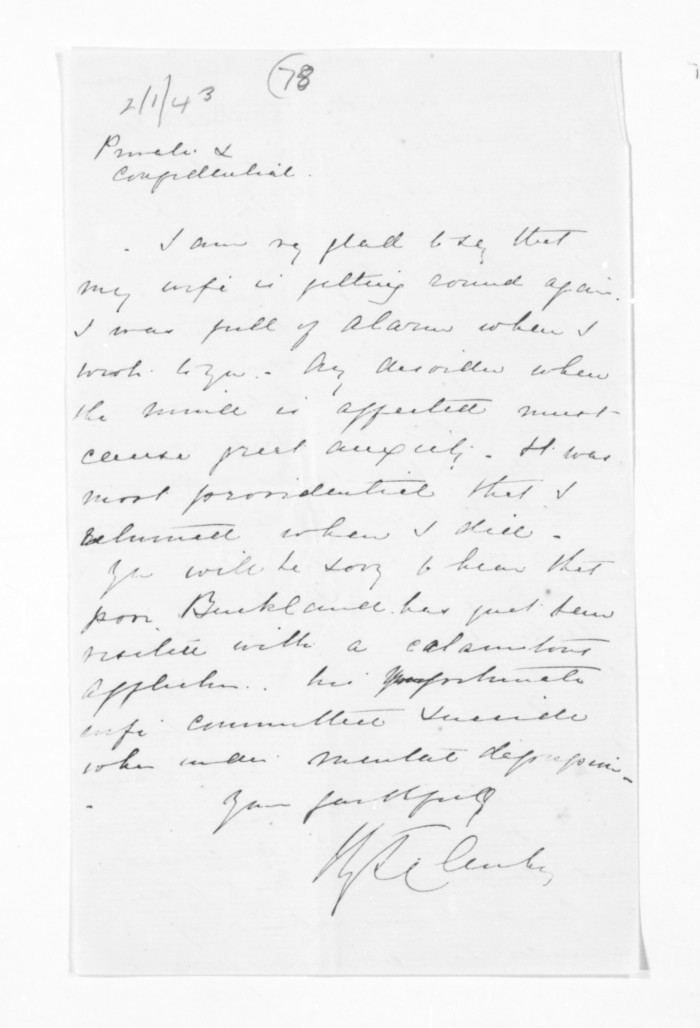 78
2/1/43
Private &
Confidential.
. I am vy glad to say that
my wife is getting round again.
I was full of alarm when I
wrote to you - Any disorder when
the mind is affected must
cause great anxiety - It was
most providential that I
returned when I did -
You will be sorry to hear that
poor Buckland has just been
visited with a calamitous
affliction. his unfortunate
wife committed suicide
when under mental depression -
Your faithfully